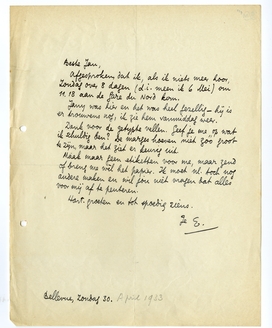 Beste Jan,
Afgesproken dat ik, als ik niets meer hoor,
Zondag over 8 dagen (d.i. meen ik 6 Mei) om
11.18 aan de Gare du Nord kom.
Jany was hier en het was heel gezellig – hij is
er trouwens nog, ik zie hem vanmiddag weer.
Dank voor de getypte vellen. Geef je me op wat
ik schuldig ben? De marges hoeven niet zoo groot
te zijn, maar dat ziet er keurig uit.
Maak maar geen etiketten voor me, maar zend
of breng me wel het papier. Ik moet nl. toch nog
andere maken en wil jou niet vragen dat alles
voor mij af te penteren.
Hart. groeten en tot spoedig ziens.
Je E.
Bellevue, Zondag 30. April 1933